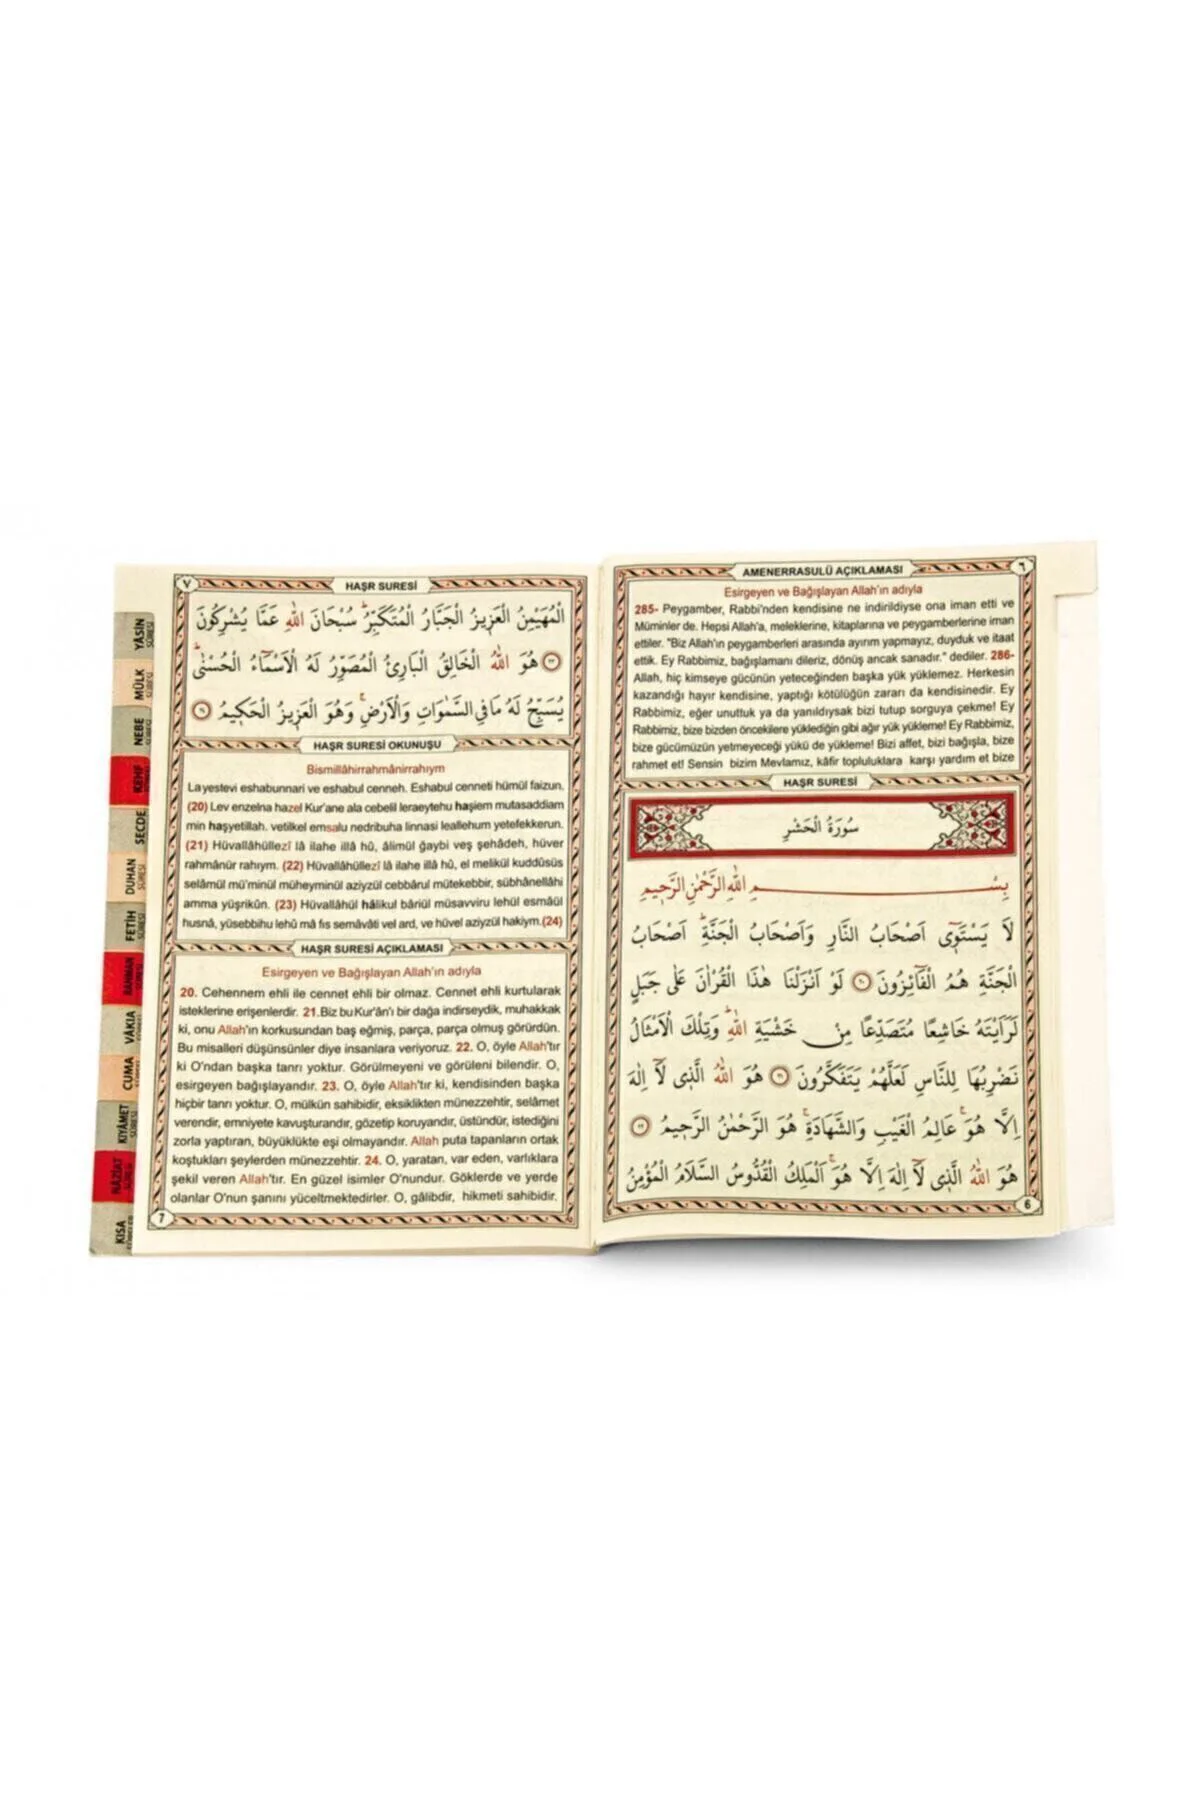 ٦
AMENERRASULÜ AÇIKLAMASI
Esirgeyen ve Bağışlayan Allah'ın adıyla
285- Peygamber, Rabbi'nden kendisine ne indirildiyse ona iman etti ve
Müminler de. Hepsi Allah'a, meleklerine, kitaplarına ve peygamberlerine iman
ettiler. "Biz Allah'ın peygamberleri arasında ayırım yapmayız, duyduk ve itaat
ettik. Ey Rabbimiz, bağışlamanı dileriz, dönüş ancak sanadır." dediler. 286-
Allah, hiç kimseye gücünün yeteceğinden başka yük yüklemez. Herkesin
kazandığı hayır kendisine, yaptığı kötülüğün zararı da kendisinedir. Ey
Rabbimiz, eğer unuttuk ya da yanıldıysak bizi tutup sorguya çekme! Ey
Rabbimiz, bize bizden öncekilere yüklediğin gibi ağır yük yükleme! Ey Rabbimiz,
bize gücümüzün yetmeyeceği yükü de yükleme! Bizi affet, bizi bağışla, bize
rahmet et! Sensin bizim Mevlamız, kâfir topluluklara karşı yardım et bize
HAŞR SURESİ
سُورَةُ الْحَشْرِ
بِسْــــمِ اللهِ الرَّحْمٰنِ الرَّح۪يمِ
لَا يَسْتَو۪ٓى اَصْحَابُ النَّارِ وَاَصْحَابُ الْجَنَّةِۜ اَصْحَابُ
الْجَنَّةِ هُمُ الْفَٓائِزُونَ ﴿٢٠﴾ لَوْ اَنْزَلْنَا هٰذَا الْقُرْاٰنَ عَلٰى جَبَلٍ
لَرَاَيْتَهُ خَاشِعًا مُتَصَدِّعًا مِنْ خَشْيَةِ اللهِۜ وَتِلْكَ الْاَمْثَالُ
نَضْرِبُهَا لِلنَّاسِ لَعَلَّهُمْ يَتَفَكَّرُونَ ﴿٢١﴾ هُوَ اللهُ الَّذ۪ى لَٓا اِلٰهَ
اِلَّا هُوَۚ عَالِمُ الْغَيْبِ وَالشَّهَادَةِۚ هُوَ الرَّحْمٰنُ الرَّح۪يمُ ﴿٢٢﴾
هُوَ اللهُ الَّذ۪ى لَٓا اِلٰهَ اِلَّا هُوَۚ اَلْمَلِكُ الْقُدُّوسُ السَّلَامُ الْمُؤْمِنُ
6
٧
HAŞR SURESİ
الْمُهَيْمِنُ الْعَز۪يزُ الْجَبَّارُ الْمُتَكَبِّرُۜ سُبْحَانَ اللهِ عَمَّا يُشْرِكُونَ
﴿٢٣﴾ هُوَ اللهُ الْخَالِقُ الْبَارِئُ الْمُصَوِّرُ لَهُ الْاَسْمَٓاءُ الْحُسْنٰىۜ
يُسَبِّحُ لَهُ مَا فِي السَّمٰوَاتِ وَالْاَرْضِۚ وَهُوَ الْعَز۪يزُ الْحَك۪يمُ ﴿٢٤﴾
HAŞR SURESİ OKUNUŞU
Bismillâhirrahmânirrahıym
La yestevi eshabunnari ve eshabul cenneh. Eshabul cenneti hümül faizun.
(20) Lev enzelna hazel Kur'ane ala cebelil leraeytehu haşiem mutasaddiam
min haşyetillah. vetilkel emsalu nedribuha linnasi leallehum yetefekkerun.
(21) Hüvallâhüllezî lâ ilahe illâ hû, âlimül ğaybi veş şehâdeh, hüver
rahmânür rahıym. (22) Hüvallâhüllezî lâ ilahe illâ hû, el melikül kuddûsüs
selâmül mü'minül müheyminül aziyzül cebbârul mütekebbir, sübhânellâhi
amma yüşrikûn. (23) Hüvallâhül hâlikul bâriül müsavviru lehül esmâül
husnâ, yüsebbihu lehû mâ fıs semâvâti vel ard, ve hüvel aziyzül hakiym.(24)
HAŞR SURESİ AÇIKLAMASI
Esirgeyen ve Bağışlayan Allah'ın adıyla
20. Cehennem ehli ile cennet ehli bir olmaz. Cennet ehli kurtularak
isteklerine erişenlerdir. 21.Biz bu Kur'ân'ı bir dağa indirseydik, muhakkak
ki, onu Allah'ın korkusundan baş eğmiş, parça, parça olmuş görürdün.
Bu misalleri düşünsünler diye insanlara veriyoruz. 22. O, öyle Allah'tır
ki O'ndan başka tanrı yoktur. Görülmeyeni ve görüleni bilendir. O,
esirgeyen bağışlayandır. 23. O, öyle Allah'tır ki, kendisinden başka
hiçbir tanrı yoktur. O, mülkün sahibidir, eksiklikten münezzehtir, selâmet
verendir, emniyete kavuşturandır, gözetip koruyandır, üstündür, istediğini
zorla yaptıran, büyüklükte eşi olmayandır. Allah puta tapanların ortak
koştukları şeylerden münezzehtir. 24. O, yaratan, var eden, varlıklara
şekil veren Allah'tır. En güzel isimler O'nundur. Göklerde ve yerde
olanlar O'nun şanını yüceltmektedirler. O, gâlibdir, hikmeti sahibidir.
7
YÂSİN SÛRESİ
MÜLK SÛRESİ
NEBE SÛRESİ
KEHF
SECDE
DUHAN SÛRESİ
FETİH SÛRESİ
RAHMAN SÛRESİ
VÂKIA
CUMA
KIYÂMET SÛRESİ
NÂZİÂT SÛRESİ
KISA SÛRELER